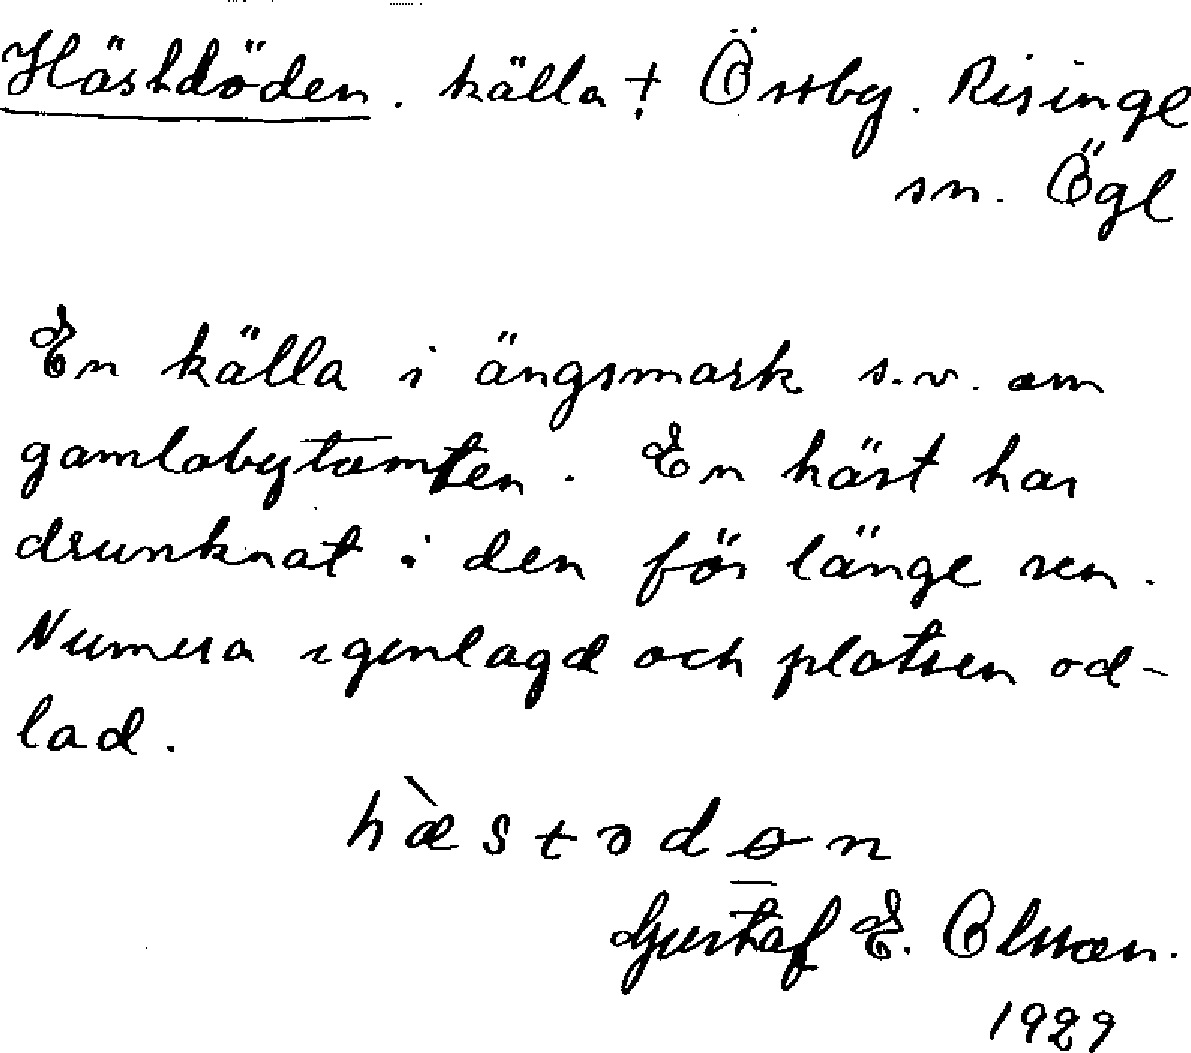 Hästdöden. källa † Össby. Risinge
sn. Ögl
En källa i ängsmark s.v. om
gamlabytomten. En häst har
drunknat i den för länge sen.
Numera igenlagd och platsen od-
lad.
hæ̀stodøn
Gustaf E. Olsson.
1929